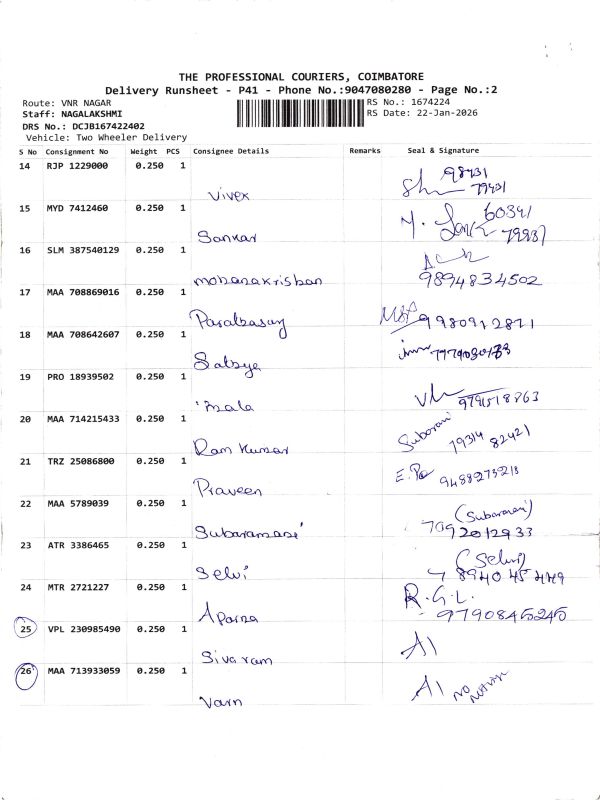 THE PROFESSIONAL COURIERS, COIMBATORE
Delivery Runsheet - P41 - Phone No.:9047080280 - Page No.:2
Route: VNR NAGAR
RS No.: 1674224
Staff: NAGALAKSHMI
RS Date: 22-Jan-2026
DRS No.: DCJB167422402
Vehicle: Two Wheeler Delivery
S No Consignment No Weight PCS Consignee Details Remarks Seal & Signature
14 RJP 1229000 0.250 1
98431
79431
Vivex
15 MYD 7412460 0.250 1
60341
Sankar
16 SLM 387540129 0.250 1
mohanakrishan 9894834502
17 MAA 708869016 0.250 1
18 MAA 708642607 0.250 1
Sathya
19 PRO 18939502 0.250 1
Mala
20 MAA 714215433 0.250 1
Subarani
79314 82421
Ram Kumar
21 TRZ 25086800 0.250 1
Praveen
22 MAA 5789039 0.250 1
(Subarani)
7092012933
23 ATR 3386465 0.250 1
(Selvi)
Selvi 8940 45 4449
24 MTR 2721227 0.250 1
R.G.L.
Aparna 9790845245
25 VPL 230985490 0.250 1
A1
Sivaram
26 MAA 713933059 0.250 1
A1
NO
Varn